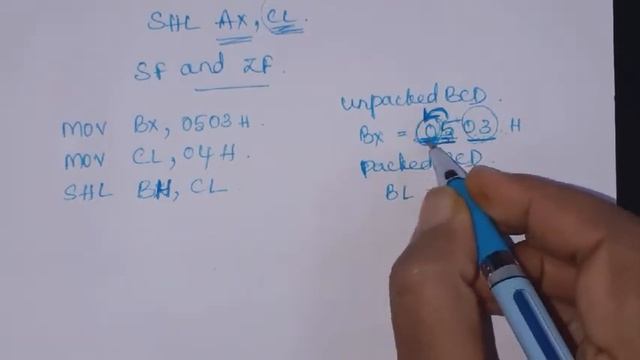 SHL AX, CL.
SF and ZF.
MOV BX, 0503H.
MOV CL, 04H.
SHL BH, CL
unpacked BCD.
BX = 0503 H
packed BCD.
BL